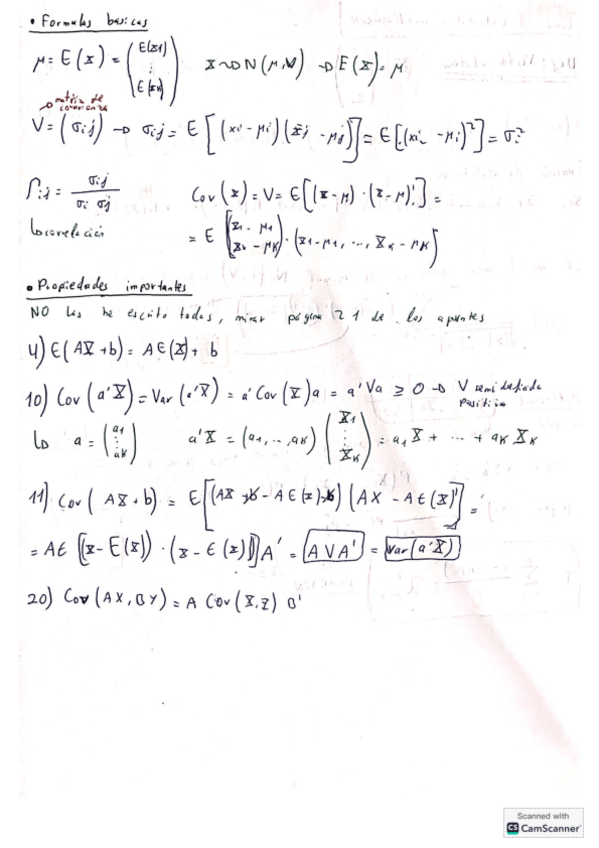 • Formulas basicas
μ = E(X) = (E(X1) ⋮ E(Xk))   X ~ N(μ,V) → E(X) = μ
→ matriz de covarianza
V = (σij) → σij = E[(xi - μi)(xj - μj)] = E[(xi - μi)²] = σi²
ρij = σij / σi σj   Cov(X) = V = E[(X-μ)·(X-μ)'] =
↳ correlación   = E [(X1 - μ1 Xk - μk)·(X1-μ1, ..., Xk - μk)]
• Propiedades importantes
NO las he escrito todas, mirar página 21 de los apuntes
4) E(AX + b) = A E(X) + b
10) Cov(a'X) = Var(a'X) = a' Cov(X) a = a'Va ≥ 0 → V semidefinida positiva
↳ a = (a1 ⋮ ak)   a'X = (a1, ..., ak)(X1 ⋮ Xk) = a1 X + ... + ak Xk
11) Cov(AX + b) = E[(AX + b - A E(X) - b)(AX - A E(X))'] =
= A E[(X - E(X))·(X - E(X))'] A' = AVA' = Var(a'X)
20) Cov(AX, BY) = A Cov(X, Y) B'
Scanned with
CS CamScanner